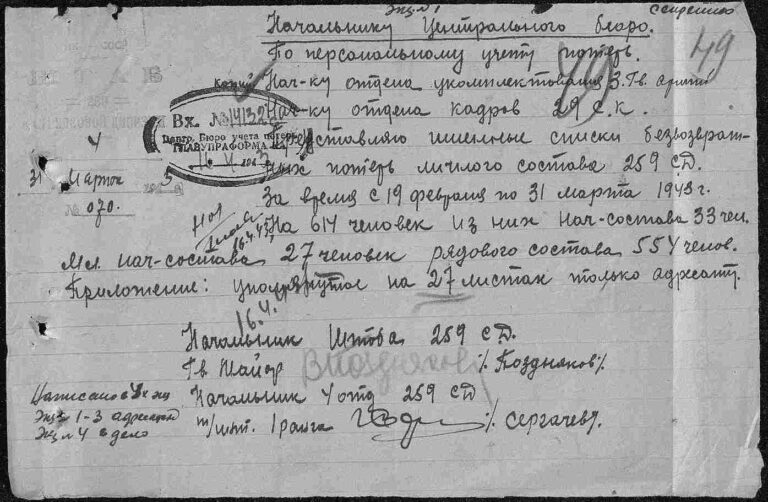 Экз. № 1
Секретно
49
Начальнику Центрального бюро.
По персональному учету потерь.
Копия
Нач-ку отдела укомплектования 3. Гв. армии
Нач-ку отдела кадров 29 с.к.
Вх. № 14132
Центр. Бюро учета потерь
ГЛАВУПРАФОРМА
Представляю именные списки безвозврат-
ных потерь личного состава 259 СД.
4
31 Марта 3
№ 070.
За время с 19 февраля по 31 марта 1943 г.
На 614 человек из них нач-состава 33 чел.
16.4.43
Мл. нач-состава 27 человек рядового состава 554 челов.
Приложение: упомянутое на 27 листах только адресату.
16.4.43
Начальник Штаба 259 СД.
Гв. Майор /Поздняков/
Написано в 4х экз
Начальник 4 отд 259 СД
Экз 1-3 адресатам
т/инт. 1 ранга /Сергачев/.
Экз № 4 в дело